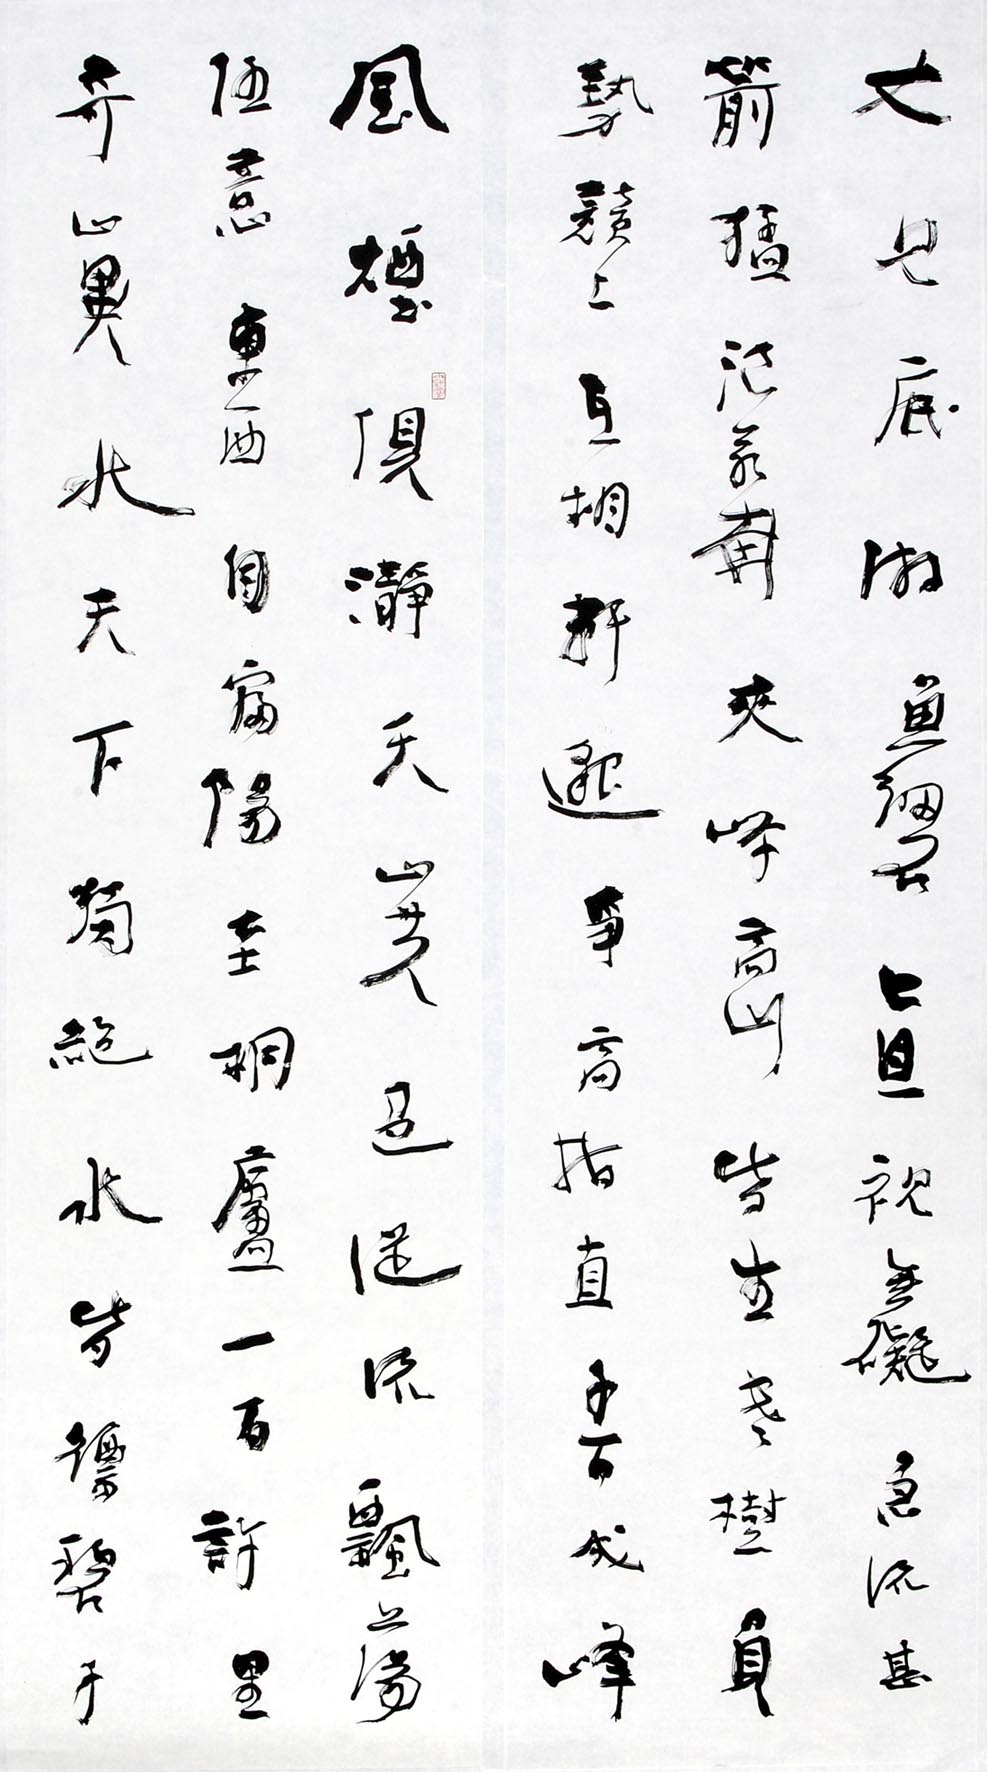 風煙俱瀞天山共色從流飄蕩
任意東西自富陽至桐廬一百許里
奇山異水天下獨絕水皆縹碧千
丈見底游魚細石直視無礙急流甚
箭猛浪若奔夾岸高山皆生寒樹負
勢競上互相軒邈爭高指直千百成峰